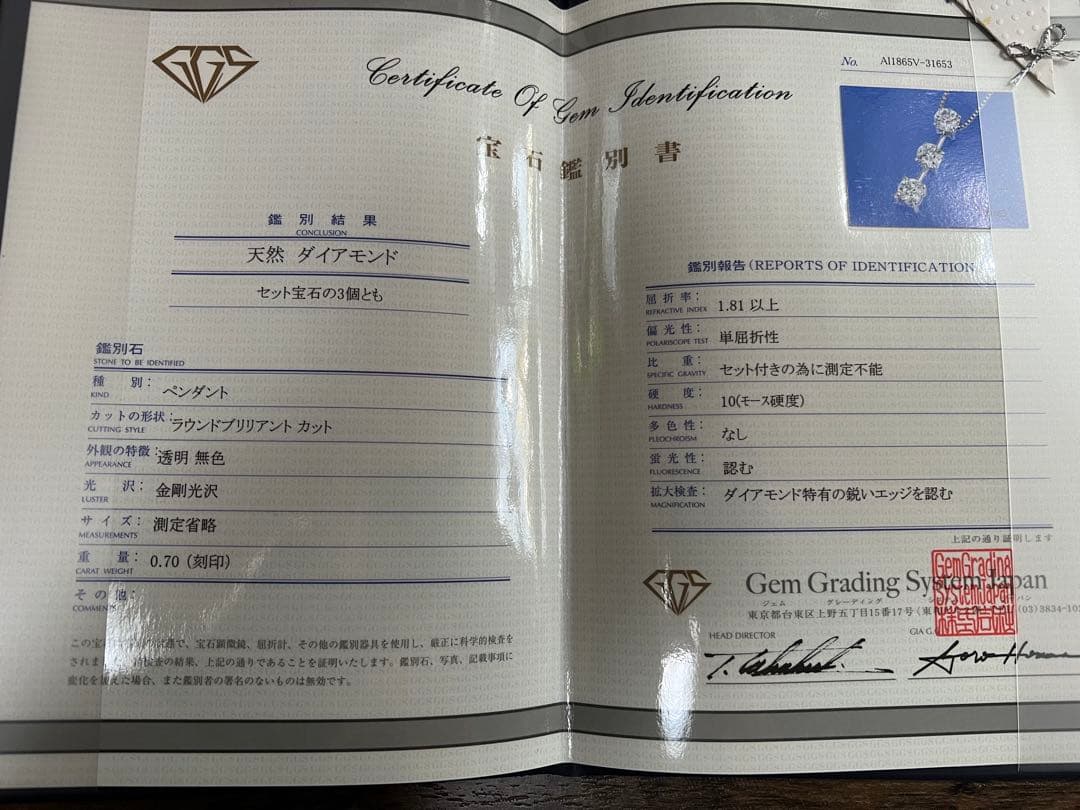 GGS
Certificate Of Gem Identification
宝石鑑別書
No. AI1865V-31653
鑑別結果
CONCLUSION
天然 ダイアモンド
セット宝石の3個とも
鑑別石
STONE TO BE IDENTIFIED
種 別: ペンダント
KIND
カットの形状: ラウンドブリリアント カット
CUTTING STYLE
外観の特徴: 透明 無色
APPEARANCE
光 沢: 金剛光沢
LUSTER
サイズ: 測定省略
MEASUREMENTS
重 量: 0.70 (刻印)
CARAT WEIGHT
その他:
COMMENTS
この宝石 で、宝石顕微鏡、屈折計、その他の鑑別器具を使用し、厳正に科学的検査を
され 検査の結果、上記の通りであることを証明いたします。鑑別石、写真、記載事項に
変化を た場合、また鑑別者の署名のないものは無効です。
鑑別報告(REPORTS OF IDENTIFICATION
屈折率: 1.81 以上
REFRACTIVE INDEX
偏光性: 単屈折性
POLARISCOPE TEST
比 重: セット付きの為に測定不能
SPECIFIC GRAVITY
硬 度: 10(モース硬度)
HARDNESS
多色性: なし
PLEOCHROISM
蛍光性: 認む
FLUORESCENCE
拡大検査: ダイアモンド特有の鋭いエッジを認む
MAGNIFICATION
上記の通り証明します
GGS
Gem Grading System Japan
ジェム グレーディング
東京都台東区上野五丁目15番17号
(03)3834-10
GemGrading
SystemJapan
HEAD DIRECTOR
GIA G